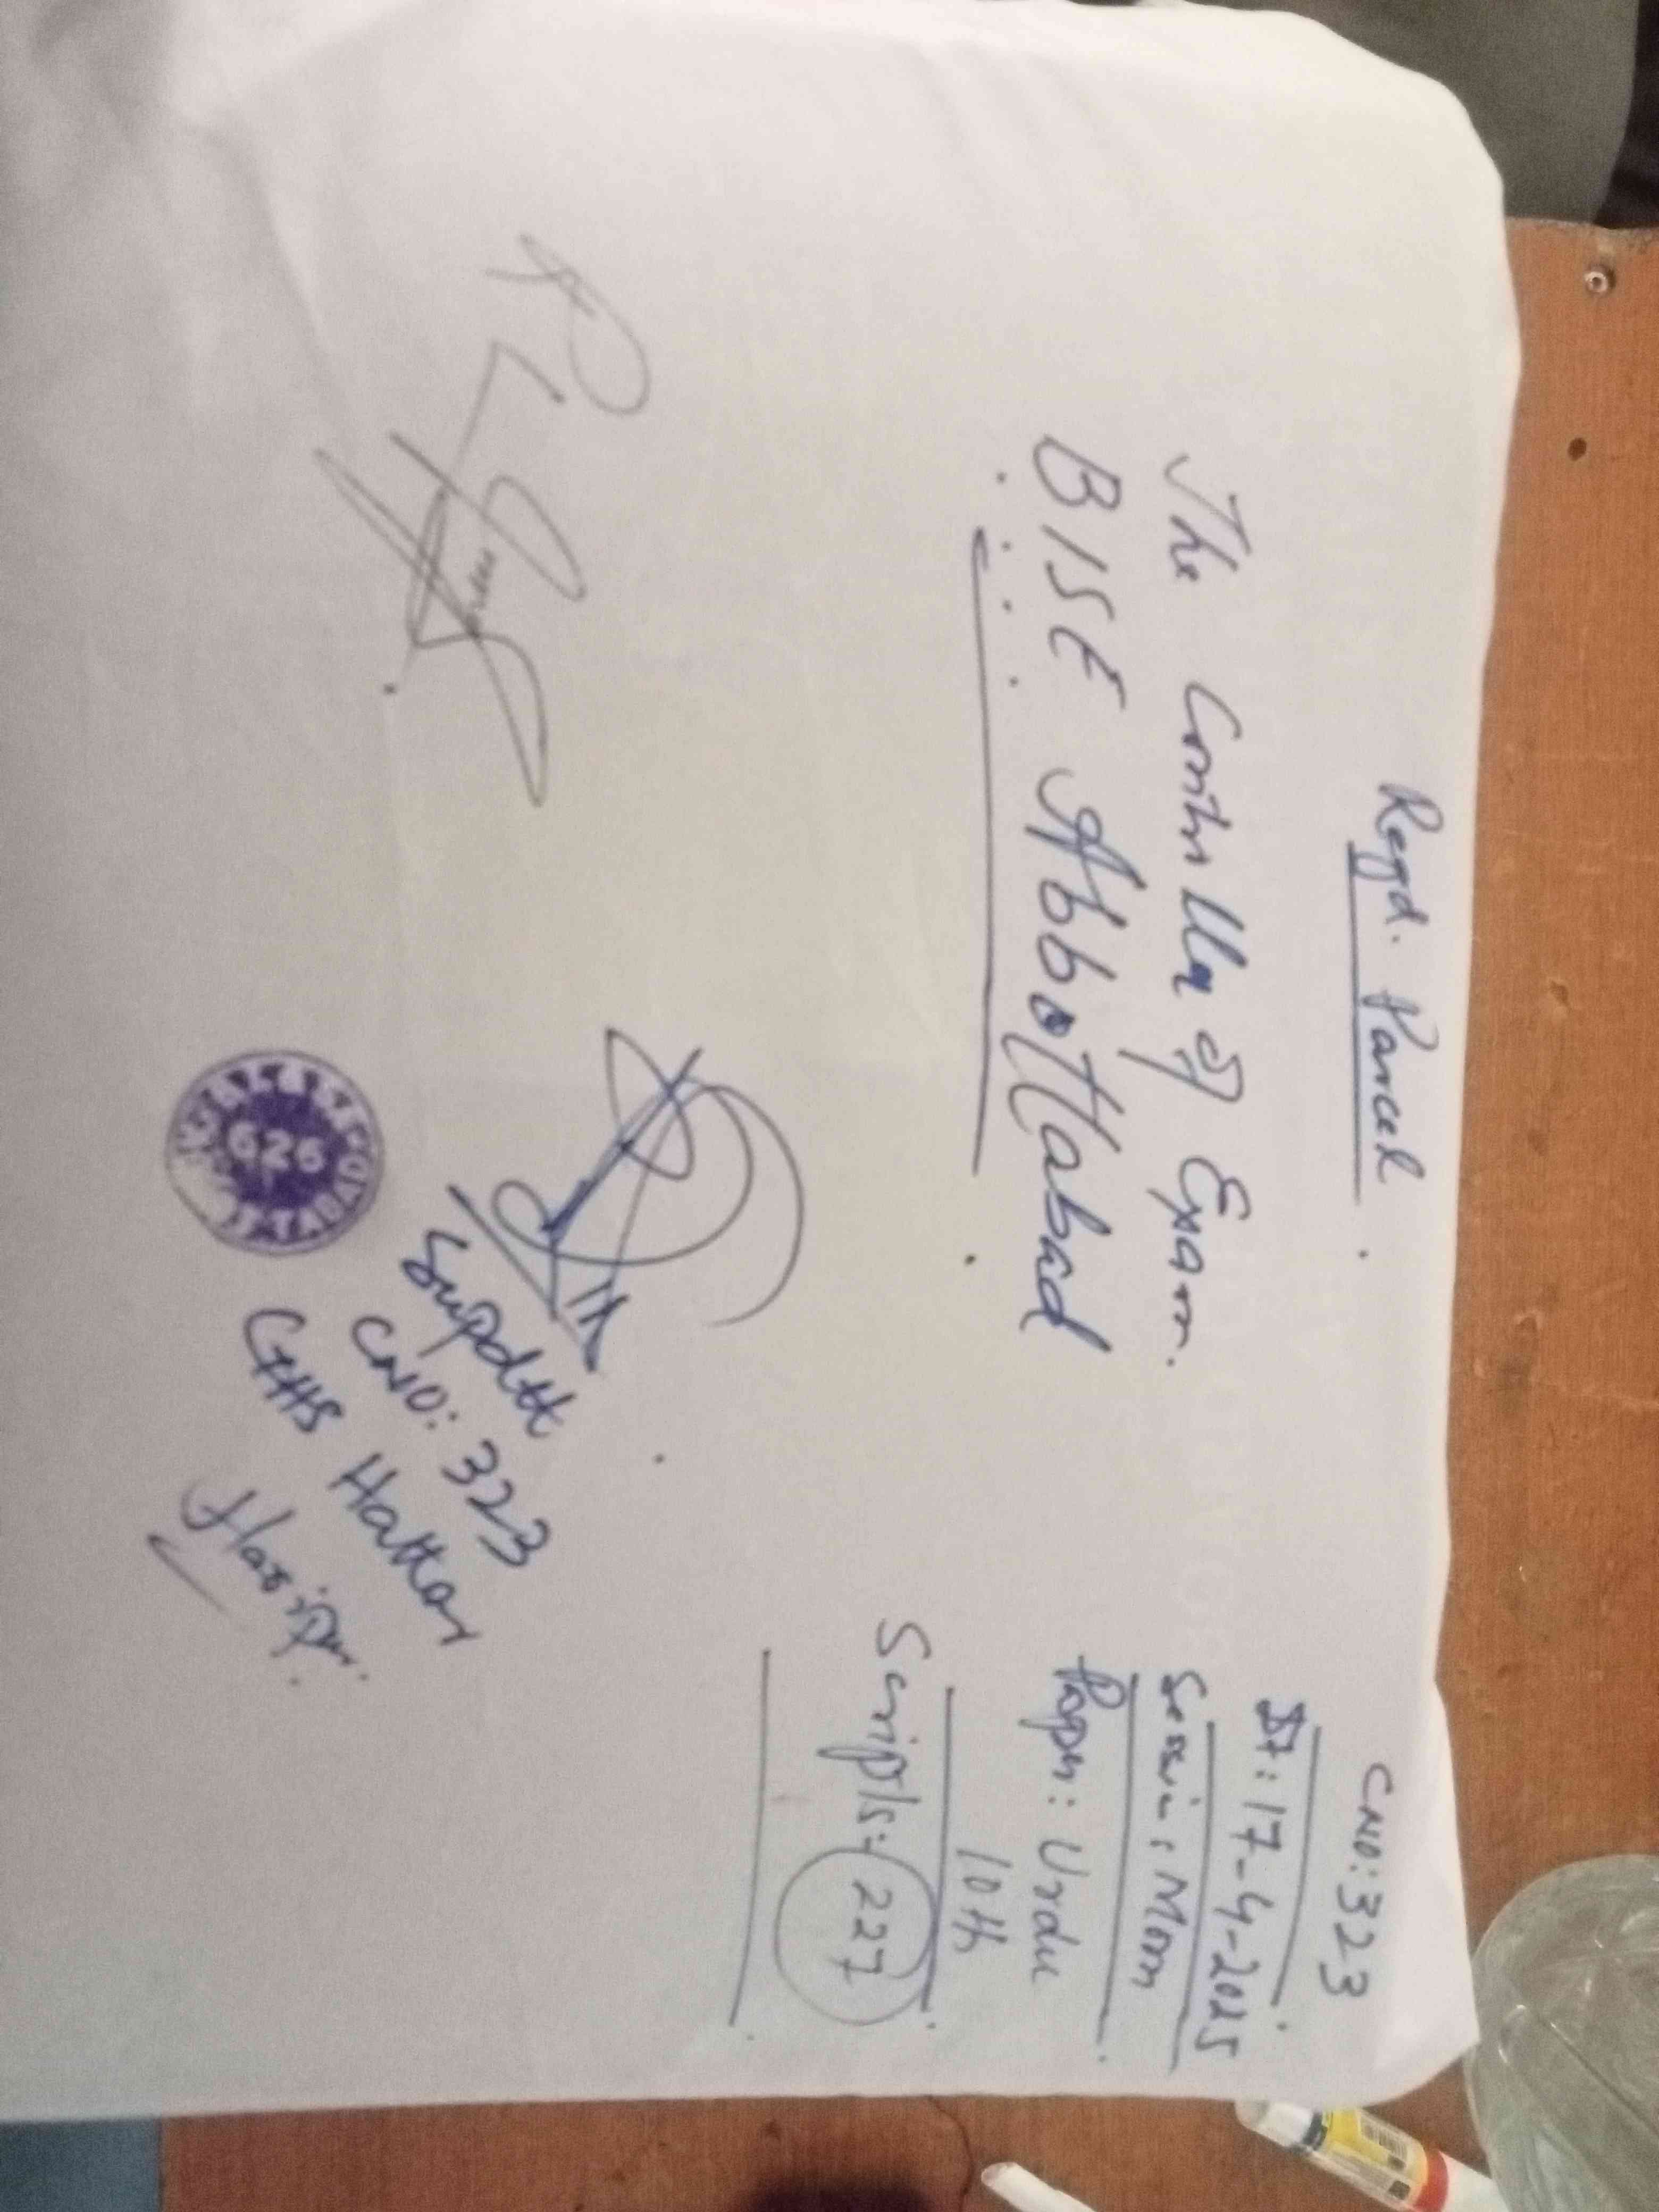 Regd. Parcel
CNO: 323
Dt: 17-4-2025
Session: Morn
Paper: Urdu
10th
Scripts: 227
The Controller of Exam.
BISE Abbottabad
Supdtt
CNO: 323
GHS Hattar
Haripur.
626